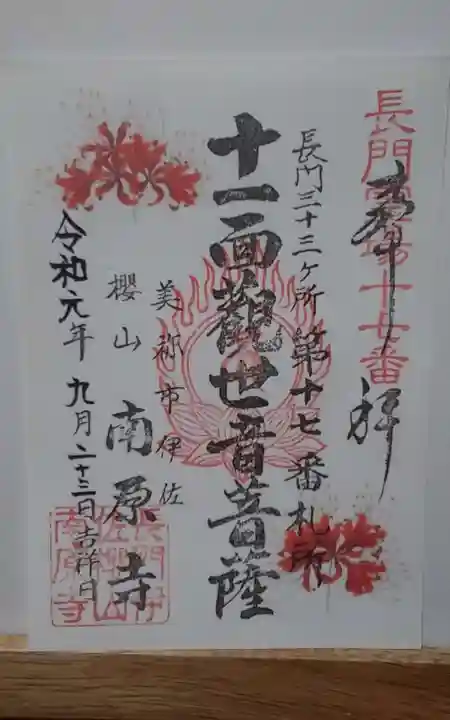 長門霊場十七番
奉拝
長門三十三ヶ所第十七番札所
十一面觀世音菩薩
美祢市伊佐
櫻山 南原寺
令和元年 九月二十三日吉祥日